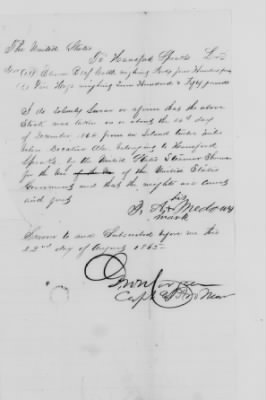 The United States
To Hansford Spratts Dr
Eleven Beef Cattle weighing Forty four Hundred pounds
Five Hogs weighing Seven Hundred & Fifty pounds
I do solemly swear or affirm that the above
Stock was taken on or about the 16th day
of December 1864 from an Island twelve miles
below Decatur Ala belonging to Hansford
Spratts, by the United States Steamer
for the use of the United States
Government and that the weights are correct
and just
his
F. A. x Medows
mark
Sworn to and Subscribed before me this
22nd day of August 1865
Capt &